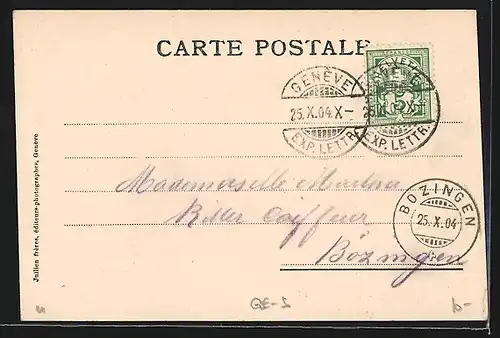 CARTE POSTALE
HELVETIA
5
GENÈVE
25.X.04.X-
EXP. LETTR.
GENÈVE
25.X.04.X-
EXP. LETTR.
BÖZINGEN
25.X.04
Mademoiselle Martha
Ritter Coiffeur
Bözingen
Jullien frères, éditeurs-photographes, Genève
GE-S
b-